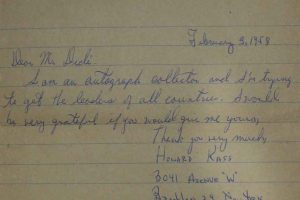 February 3, 1958
Dear Mr.
I am an autograph collector and I'm trying
to get the leaders of all countries. I would
be very grateful if you would give me yours,
Thank you very much,
Howard Kass
3041 Avenue "W"
Brooklyn 29 New York